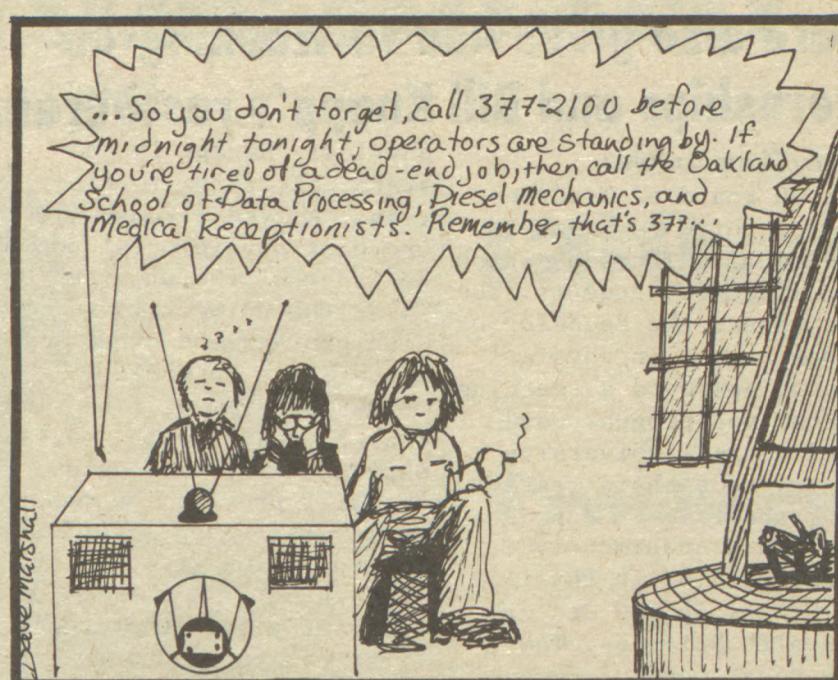 ...So you don't forget, call 377-2100 before
midnight tonight, operators are standing by. If
you're tired of a dead-end job, then call the Oakland
School of Data Processing, Diesel Mechanics, and
Medical Receptionists. Remember, that's 377...
????
Dave Marshall